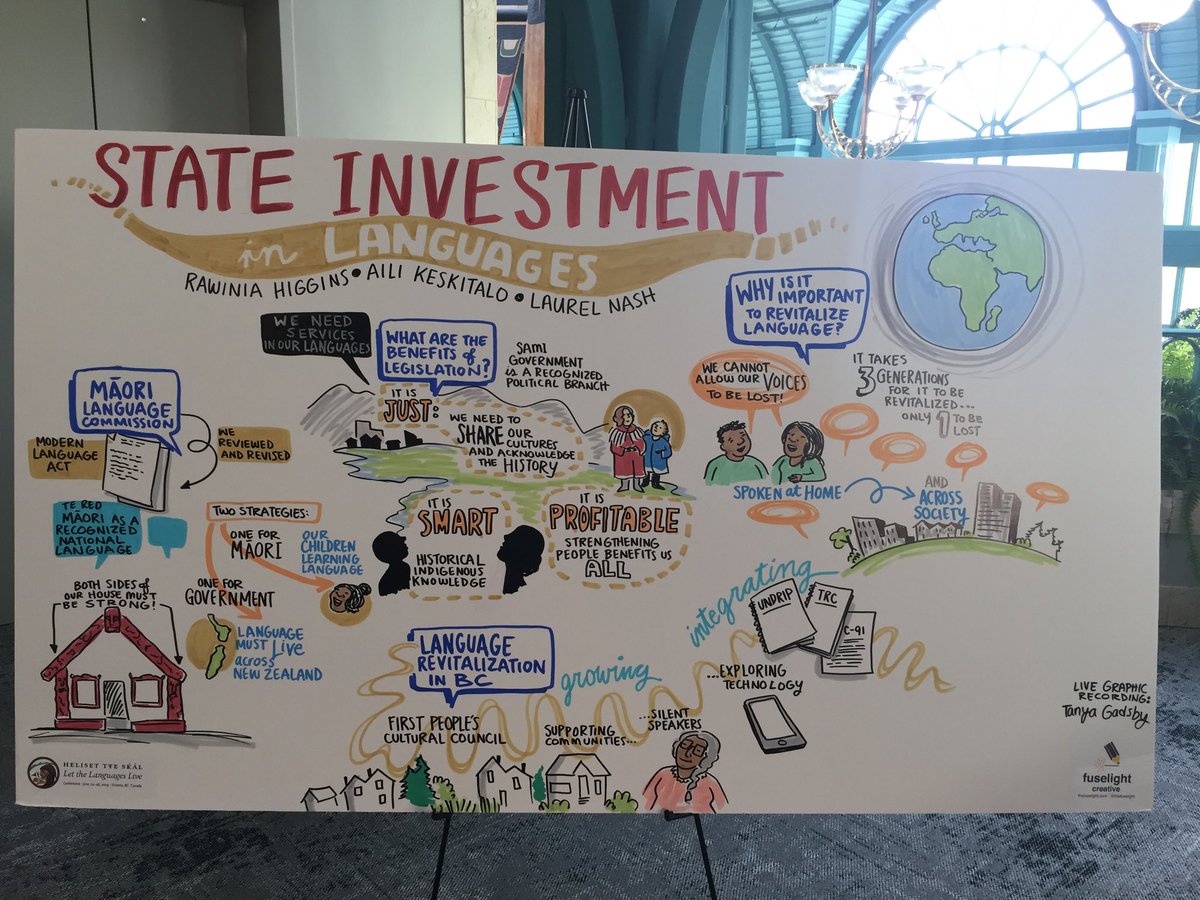 STATE INVESTMENT
in LANGUAGES
RAWINIA HIGGINS • AILI KESKITALO • LAUREL NASH
WE NEED
SERVICES
IN OUR LANGUAGES
WHAT ARE THE
BENEFITS of
LEGISLATION?
SAMI
GOVERNMENT
IS A RECOGNIZED
POLITICAL BRANCH
IT IS
JUST:
WE NEED TO
SHARE OUR
CULTURES
AND ACKNOWLEDGE
THE HISTORY
IT IS
SMART
HISTORICAL
INDIGENOUS
KNOWLEDGE
IT IS
PROFITABLE
STRENGTHENING
PEOPLE BENEFITS US
ALL
MĀORI
LANGUAGE
COMMISSION
MODERN
LANGUAGE
ACT
WE
REVIEWED
AND REVISED
TE REO
MĀORI AS A
RECOGNIZED
NATIONAL
LANGUAGE
TWO STRATEGIES:
ONE FOR
MĀORI
OUR
CHILDREN
LEARNING
LANGUAGE
ONE FOR
GOVERNMENT
LANGUAGE
MUST LIVE
ACROSS
NEW ZEALAND
BOTH SIDES of
OUR HOUSE MUST
BE STRONG!
WHY IS IT
IMPORTANT
TO REVITALIZE
LANGUAGE?
WE CANNOT
ALLOW OUR VOICES
TO BE LOST!
IT TAKES
3 GENERATIONS
FOR IT TO BE
REVITALIZED...
ONLY 1 TO BE
LOST
SPOKEN at HOME
AND
ACROSS
SOCIETY
LANGUAGE
REVITALIZATION
IN BC
growing
integrating
UNDRIP
TRC
C-91
FIRST PEOPLE'S
CULTURAL COUNCIL
SUPPORTING
COMMUNITIES...
...SILENT
SPEAKERS
...EXPLORING
TECHNOLOGY
LIVE GRAPHIC
RECORDING:
Tanya Gadsby
fuselight
creative
HELISET TŦE SḰÁL
Let the Languages Live